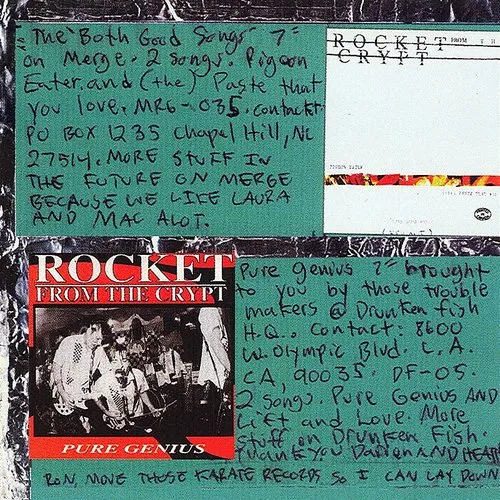 The "Both Good Songs" 7"
on Merge. 2 songs. Pigeon
Eater. and (the) Paste that
you love. MRG-035. contact:
PO BOX 1235 Chapel Hill, NC
27514. MORE STUFF IN
THE FUTURE ON MERGE
BECAUSE WE LIKE LAURA
AND MAC ALOT.
ROCKET FROM TH
CRYPT
PIGEON EATER
ROCKET
FROM THE CRYPT
PURE GENIUS
Pure Genius 7" brought
to you by those trouble
makers @ Drunken fish
H.Q.. Contact: 8600
W. Olympic Blvd. L.A.
CA, 90035. DF-05.
2 songs. Pure Genius AND
Lift and Love. More
stuff on Drunken Fish.
Thank you Darren AND HEATH
RON, MOVE THOSE KARATE RECORDS SO I CAN LAY DOWN